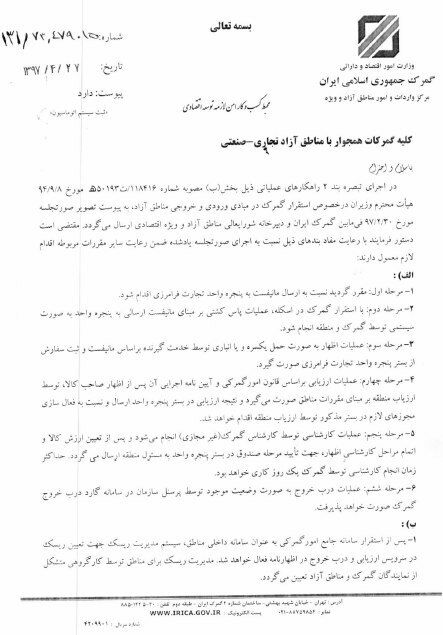 بسمه تعالی
شماره: ۱۳۱/۷۳,۴۷۹,۰۱۵
تاریخ: ۱۳۹۷/۴/۲۷
پیوست: دارد
«ثبت سیستم اتوماسیون»
وزارت امور اقتصاد و دارائی
گمرک جمهوری اسلامی ایران
مرکز واردات و امور مناطق آزاد و ویژه
محیط کسب و کار امن لازمه توسعه اقتصادی
کلیه گمرکات همجوار با مناطق آزاد تجاری–صنعتی
باسلام و احترام
در اجرای تبصره بند ۲ راهکارهای عملیاتی ذیل بخش(ب) مصوبه شماره ۱۱۸۴۱۶/ت۵۰۱۹۳ه مورخ ۹۴/۹/۸
هیأت محترم وزیران درخصوص استقرار گمرک در مبادی ورودی و خروجی مناطق آزاد، به پیوست تصویر صورتجلسه
مورخ ۹۷/۲/۳۰ فی‌مابین گمرک ایران و دبیرخانه شورایعالی مناطق آزاد و ویژه اقتصادی ارسال می‌گردد. مقتضی است
دستور فرمایند با رعایت مفاد بندهای ذیل نسبت به اجرای صورتجلسه یادشده ضمن رعایت سایر مقررات مربوطه اقدام
لازم معمول دارند:
الف) :
۱- مرحله اول: مقرر گردید نسبت به ارسال مانیفست به پنجره واحد تجارت فرامرزی اقدام شود.
۲- مرحله دوم: با استقرار گمرک در اسکله، عملیات پاس کشتی بر مبنای مانیفست ارسالی به پنجره واحد به صورت
سیستمی توسط گمرک و منطقه انجام شود.
۳- مرحله سوم: عملیات اظهار به صورت حمل یکسره و یا انباری توسط خدمت گیرنده براساس مانیفست و ثبت سفارش
از بستر پنجره واحد تجارت فرامرزی صورت گیرد.
۴- مرحله چهارم: عملیات ارزیابی براساس قانون امورگمرکی و آیین نامه اجرایی آن پس از اظهار صاحب کالا، توسط
ارزیاب منطقه بر مبنای مقررات مناطق صورت می‌گیرد و نتیجه ارزیابی در بستر پنجره واحد ارسال و نسبت به فعال سازی
مجوزهای لازم در بستر مذکور توسط ارزیاب منطقه اقدام خواهد شد.
۵- مرحله پنجم: عملیات کارشناسی توسط کارشناس گمرک(غیر مجازی) انجام می‌شود و پس از تعیین ارزش کالا و
اتمام مراحل کارشناسی اظهار، جهت تأیید مرحله صندوق در بستر پنجره واحد به مسئول منطقه ارسال می گردد. حداکثر
زمان انجام کارشناسی توسط گمرک یک روز کاری خواهد بود.
۶- مرحله ششم: عملیات درب خروج به صورت وضعیت موجود توسط پرسنل سازمان در سامانه گارد درب خروج
گمرک صورت خواهد پذیرفت.
ب) :
۱- پس از استقرار سامانه جامع امورگمرکی به عنوان سامانه داخلی مناطق، سیستم مدیریت ریسک جهت تعیین ریسک
در سرویس ارزیابی و درب خروج در اظهارنامه فعال خواهد شد. مدیریت ریسک برای مناطق توسط کارگروهی متشکل
از نمایندگان گمرک و مناطق آزاد تعیین می‌گردد.
آدرس: تهران - خیابان شهید بهشتی - ساختمان شماره ۲ گمرک ایران - طبقه دوم
پست الکترونیک : WWW.IRICA.GOV.IR
شماره سریال : ۴۲۰۹۹۰۱